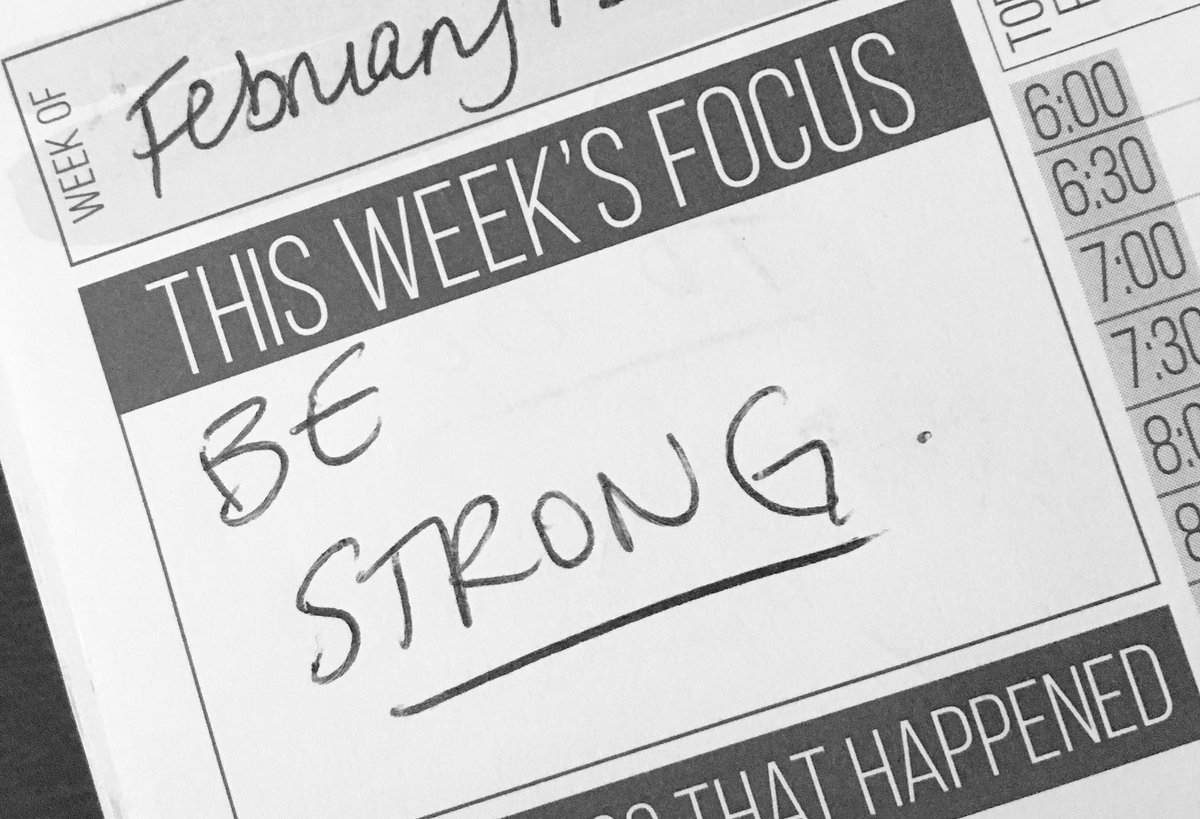 WEEK OF
February
THIS WEEK'S FOCUS
BE
STRONG.
THAT HAPPENED
6:00
6:30
7:00
7:30